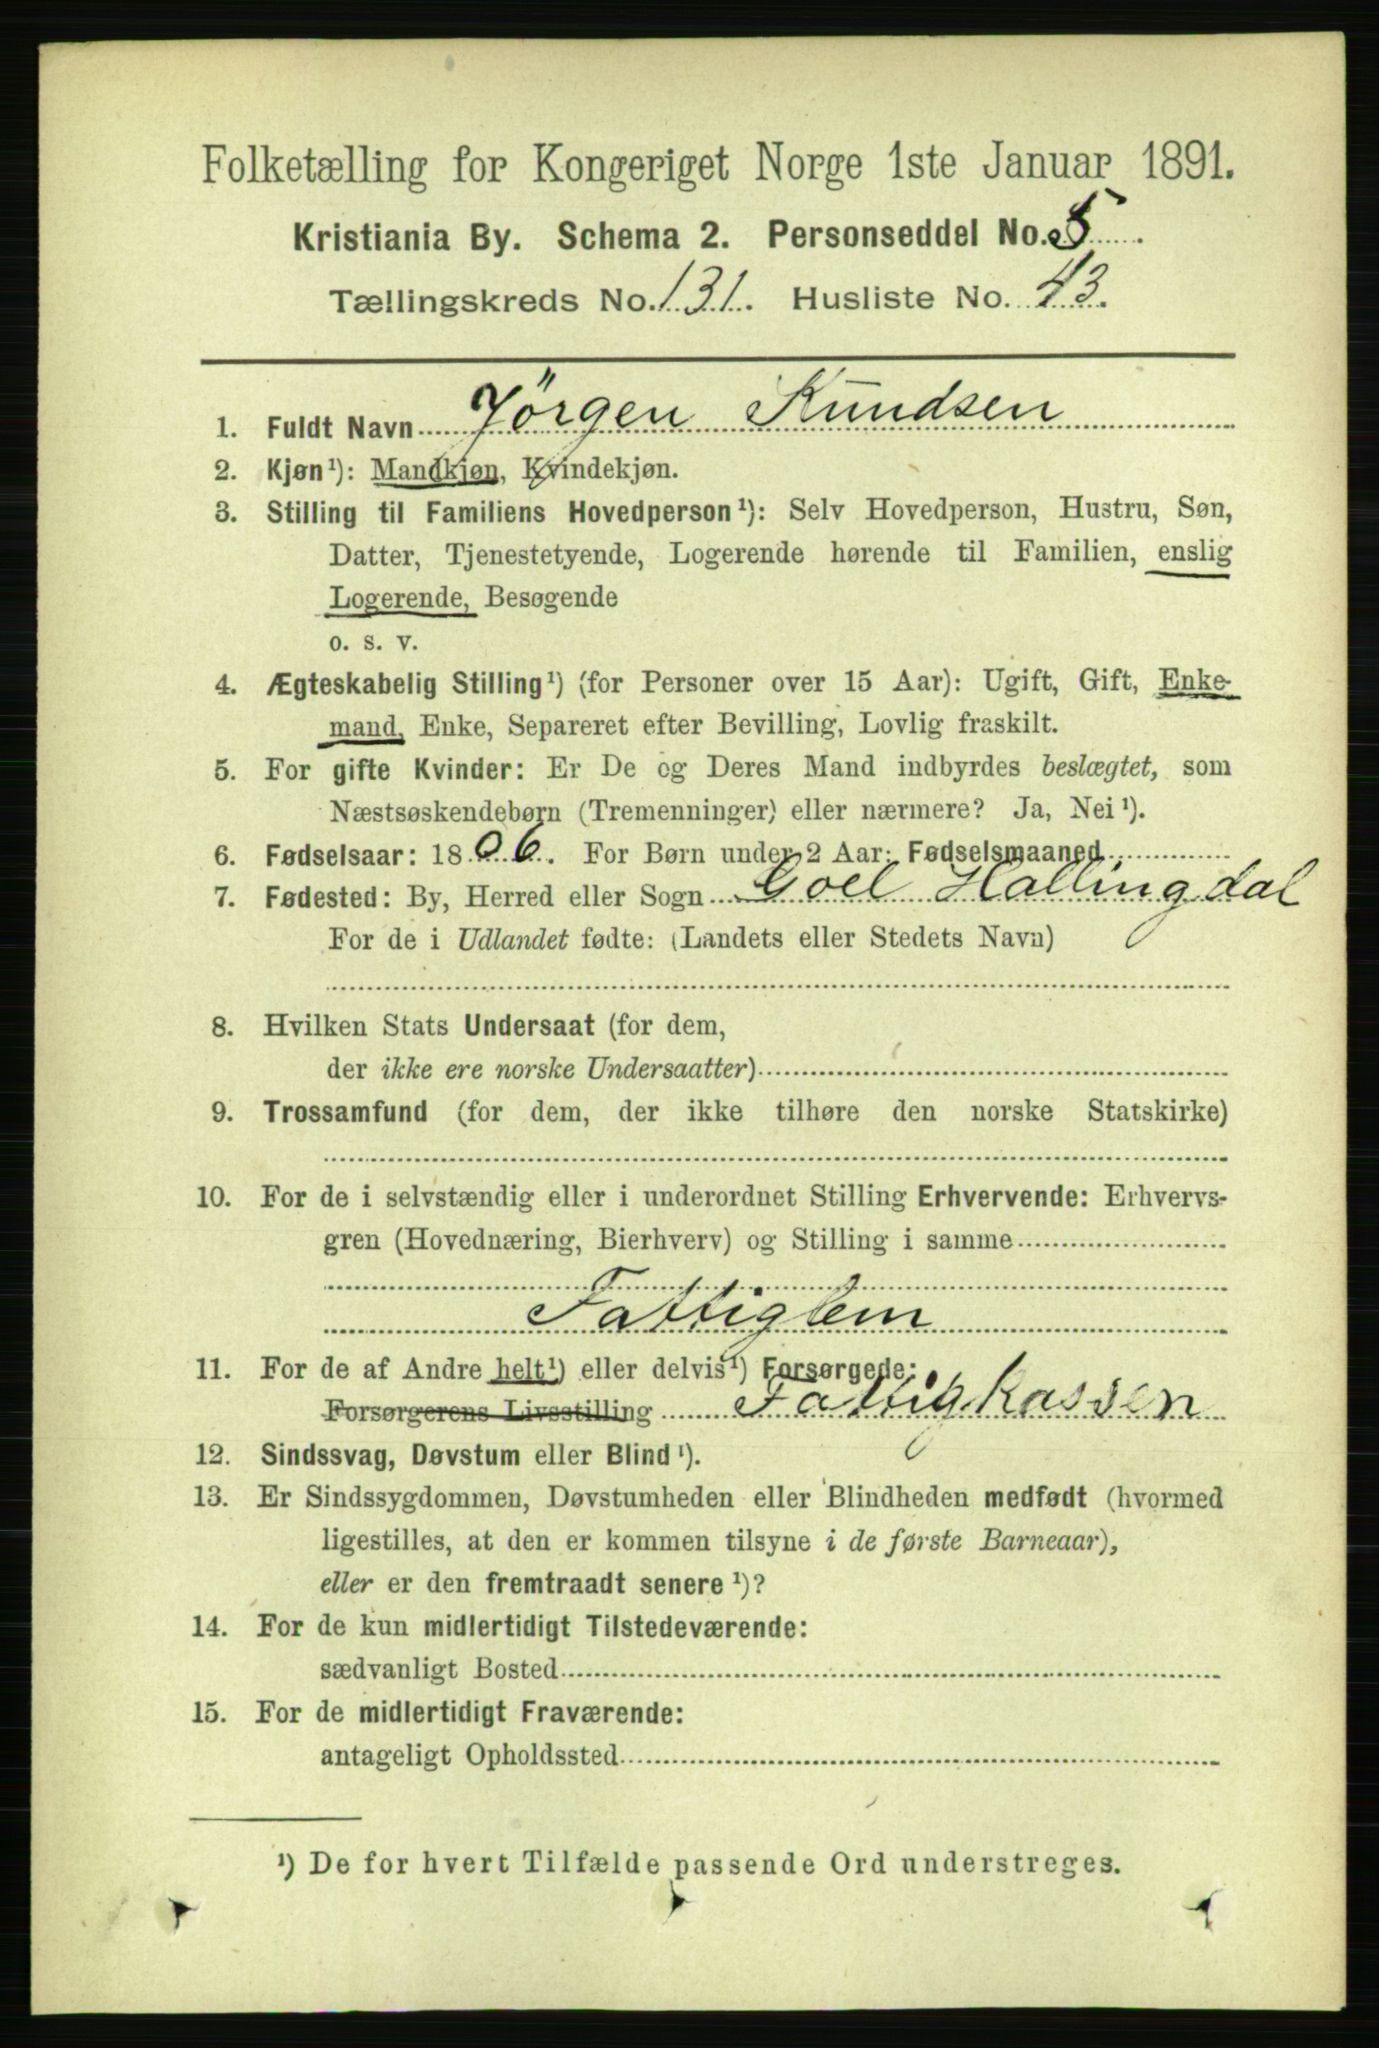 Folketælling for Kongeriget Norge 1ste Januar 1891.
Kristiania By. Schema 2. Personseddel No. 5
Tællingskreds No. 131. Husliste No. 43.
1. Fuldt Navn Jörgen Kundsen
2. Kjøn¹): Mandkjøn, Kvindekjøn.
3. Stilling til Familiens Hovedperson¹): Selv Hovedperson, Hustru, Søn,
Datter, Tjenestetyende, Logerende hørende til Familien, enslig
Logerende, Besøgende
o. s. v.
4. Ægteskabelig Stilling¹) (for Personer over 15 Aar): Ugift, Gift, Enke-
mand, Enke, Separeret efter Bevilling, Lovlig fraskilt.
5. For gifte Kvinder: Er De og Deres Mand indbyrdes beslægtet, som
Næstsøskendebørn (Tremenninger) eller nærmere? Ja, Nei¹).
6. Fødselsaar: 1806. For Børn under 2 Aar: Fødselsmaaned
7. Fødested: By, Herred eller Sogn Goel Hallingdal
For de i Udlandet fødte: (Landets eller Stedets Navn)
8. Hvilken Stats Undersaat (for dem,
der ikke ere norske Undersaatter)
9. Trossamfund (for dem, der ikke tilhøre den norske Statskirke)
10. For de i selvstændig eller i underordnet Stilling Erhvervende: Erhvervs-
gren (Hovednæring, Bierhverv) og Stilling i samme
Fattiglem
11. For de af Andre helt¹) eller delvis¹) Forsørgede:
Forsørgerens Livsstilling Fattigkassen
12. Sindssvag, Døvstum eller Blind¹).
13. Er Sindssygdommen, Døvstumheden eller Blindheden medfødt (hvormed
ligestilles, at den er kommen tilsyne i de første Barneaar),
eller er den fremtraadt senere¹)?
14. For de kun midlertidigt Tilstedeværende:
sædvanligt Bosted
15. For de midlertidigt Fraværende:
antageligt Opholdssted
¹) De for hvert Tilfælde passende Ord understreges.